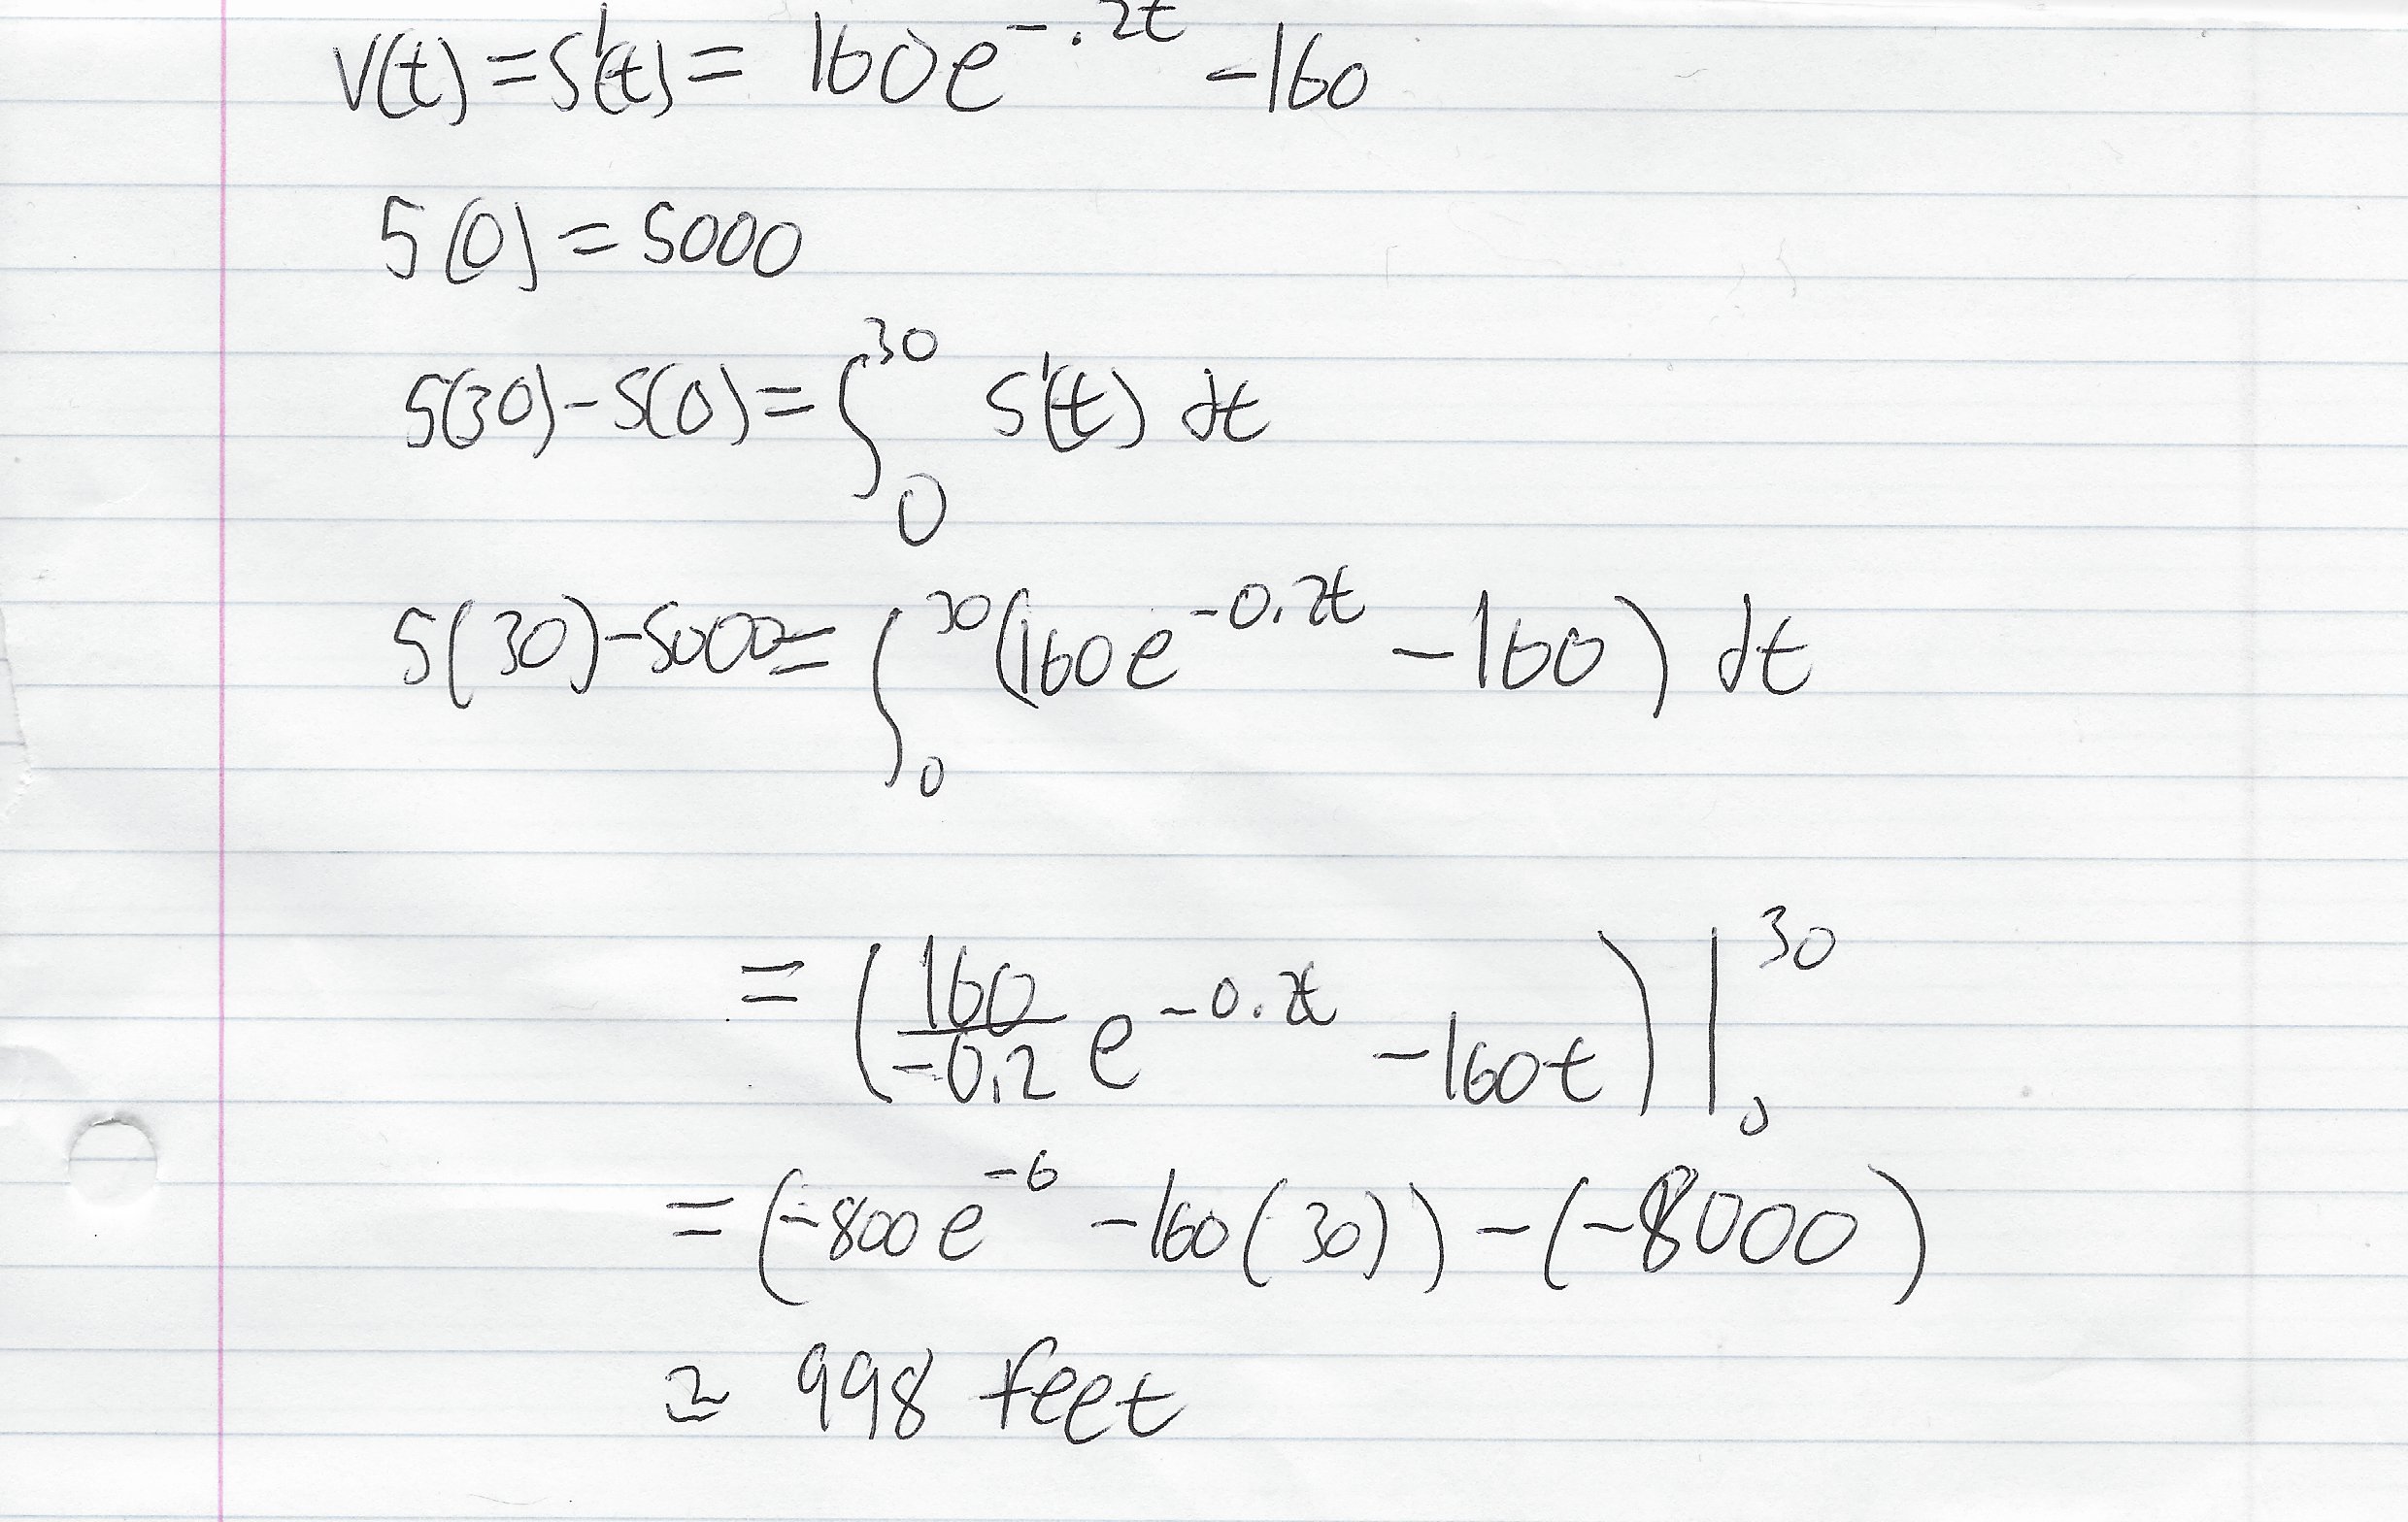 V(t) = S'(t) = 160e^{-.2t} -160
S(0) = 5000
S(30) - S(0) = ∫_0^{30} S'(t) dt
S(30) - 5000 = ∫_0^{30} (160e^{-0.2t} - 160) dt
= (160/-0.2 e^{-0.2t} - 160t) |_0^{30}
= (-800e^{-6} - 160(30)) - (-8000)
≃ 998 feet